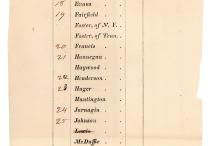 18 Evans
19 Fairfield
Foster, of N. Y.
Foster, of Tenn.
20 Francis
21 Hannegan
Haywood
22 Henderson
23 Huger
Huntington
24 Jarnagin
25 Johnson
Lewis
McDuffie